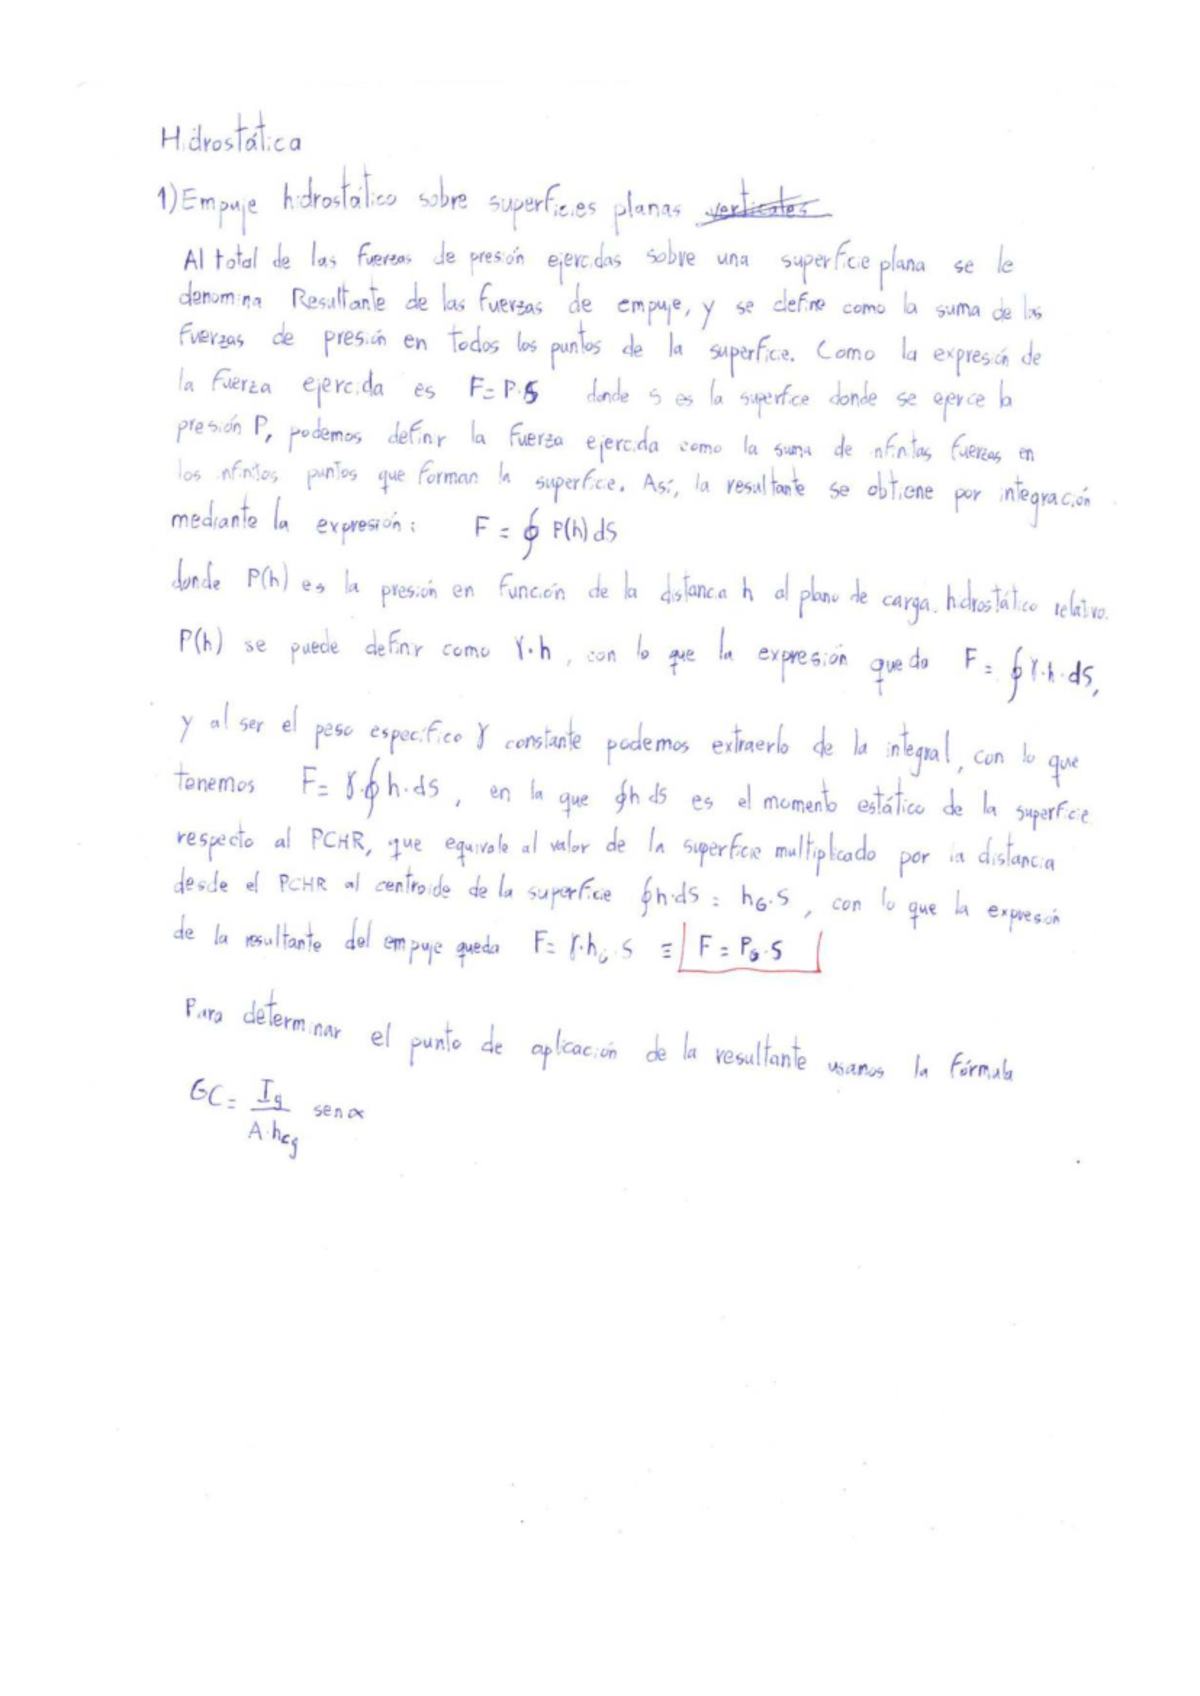 Hidrostática
1) Empuje hidrostático sobre superficies planas verticales
Al total de las fuerzas de presión ejercidas sobre una superficie plana se le
denomina Resultante de las fuerzas de empuje, y se define como la suma de las
fuerzas de presión en todos los puntos de la superficie. Como la expresión de
la fuerza ejercida es F= P·S donde s es la superfice donde se ejerce la
presión P, podemos definir la fuerza ejercida como la suma de infinitas fuerzas en
los infinitos puntos que forman la superfice. Así, la resultante se obtiene por integración
mediante la expresión: F = ∮ P(h) dS
donde P(h) es la presión en función de la distancia h al plano de carga hidrostático relativo.
P(h) se puede definir como γ·h, con lo que la expresión queda F= ∮γ·h·dS,
y al ser el peso específico γ constante podemos extraerlo de la integral, con lo que
tenemos F= γ·∮h·dS, en la que ∮h dS es el momento estático de la superficie
respecto al PCHR, que equivale al valor de la superficie multiplicado por la distancia
desde el PCHR al centroide de la superficie ∮h·dS = hG·S, con lo que la expresión
de la resultante del empuje queda F= γ·hG·S ≡ F = PG·S
Para determinar el punto de aplicación de la resultante usamos la fórmula
GC= Ig / A·hcg sen α